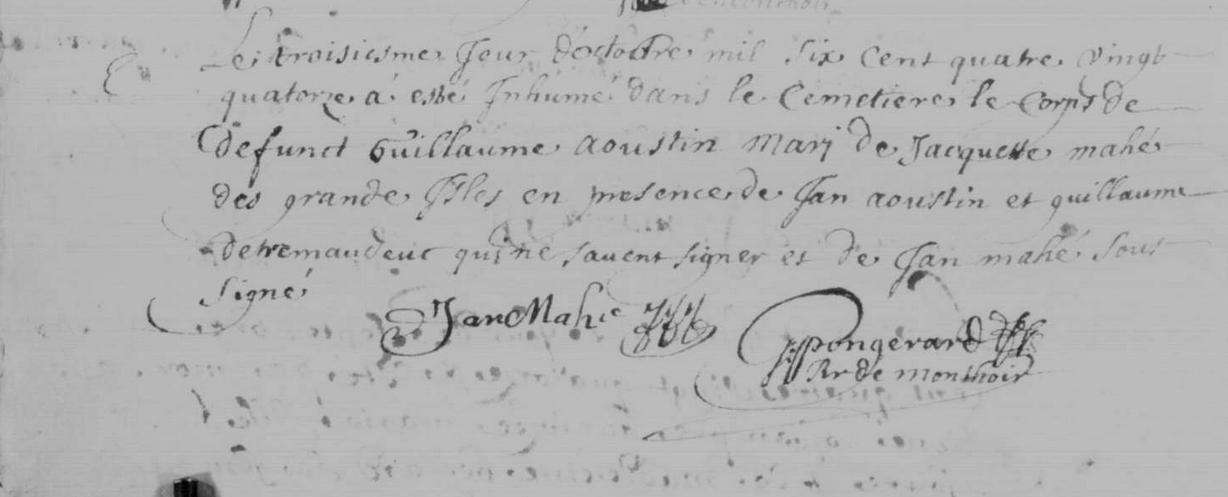 Le troisiesme Jour d'octobre mil six cent quatre vingt
quatorze á esté Jnhumé dans le Cemetiere le Corps de
defunct Guillaume aoustin Marj de Jacquette mahé
des grande Jsles en presence de Jan aoustin et guillaume
detremaudeuc qui ne savent signer et de Jan mahé sous
signé
Jan Mahé
pongerard
de monthoir